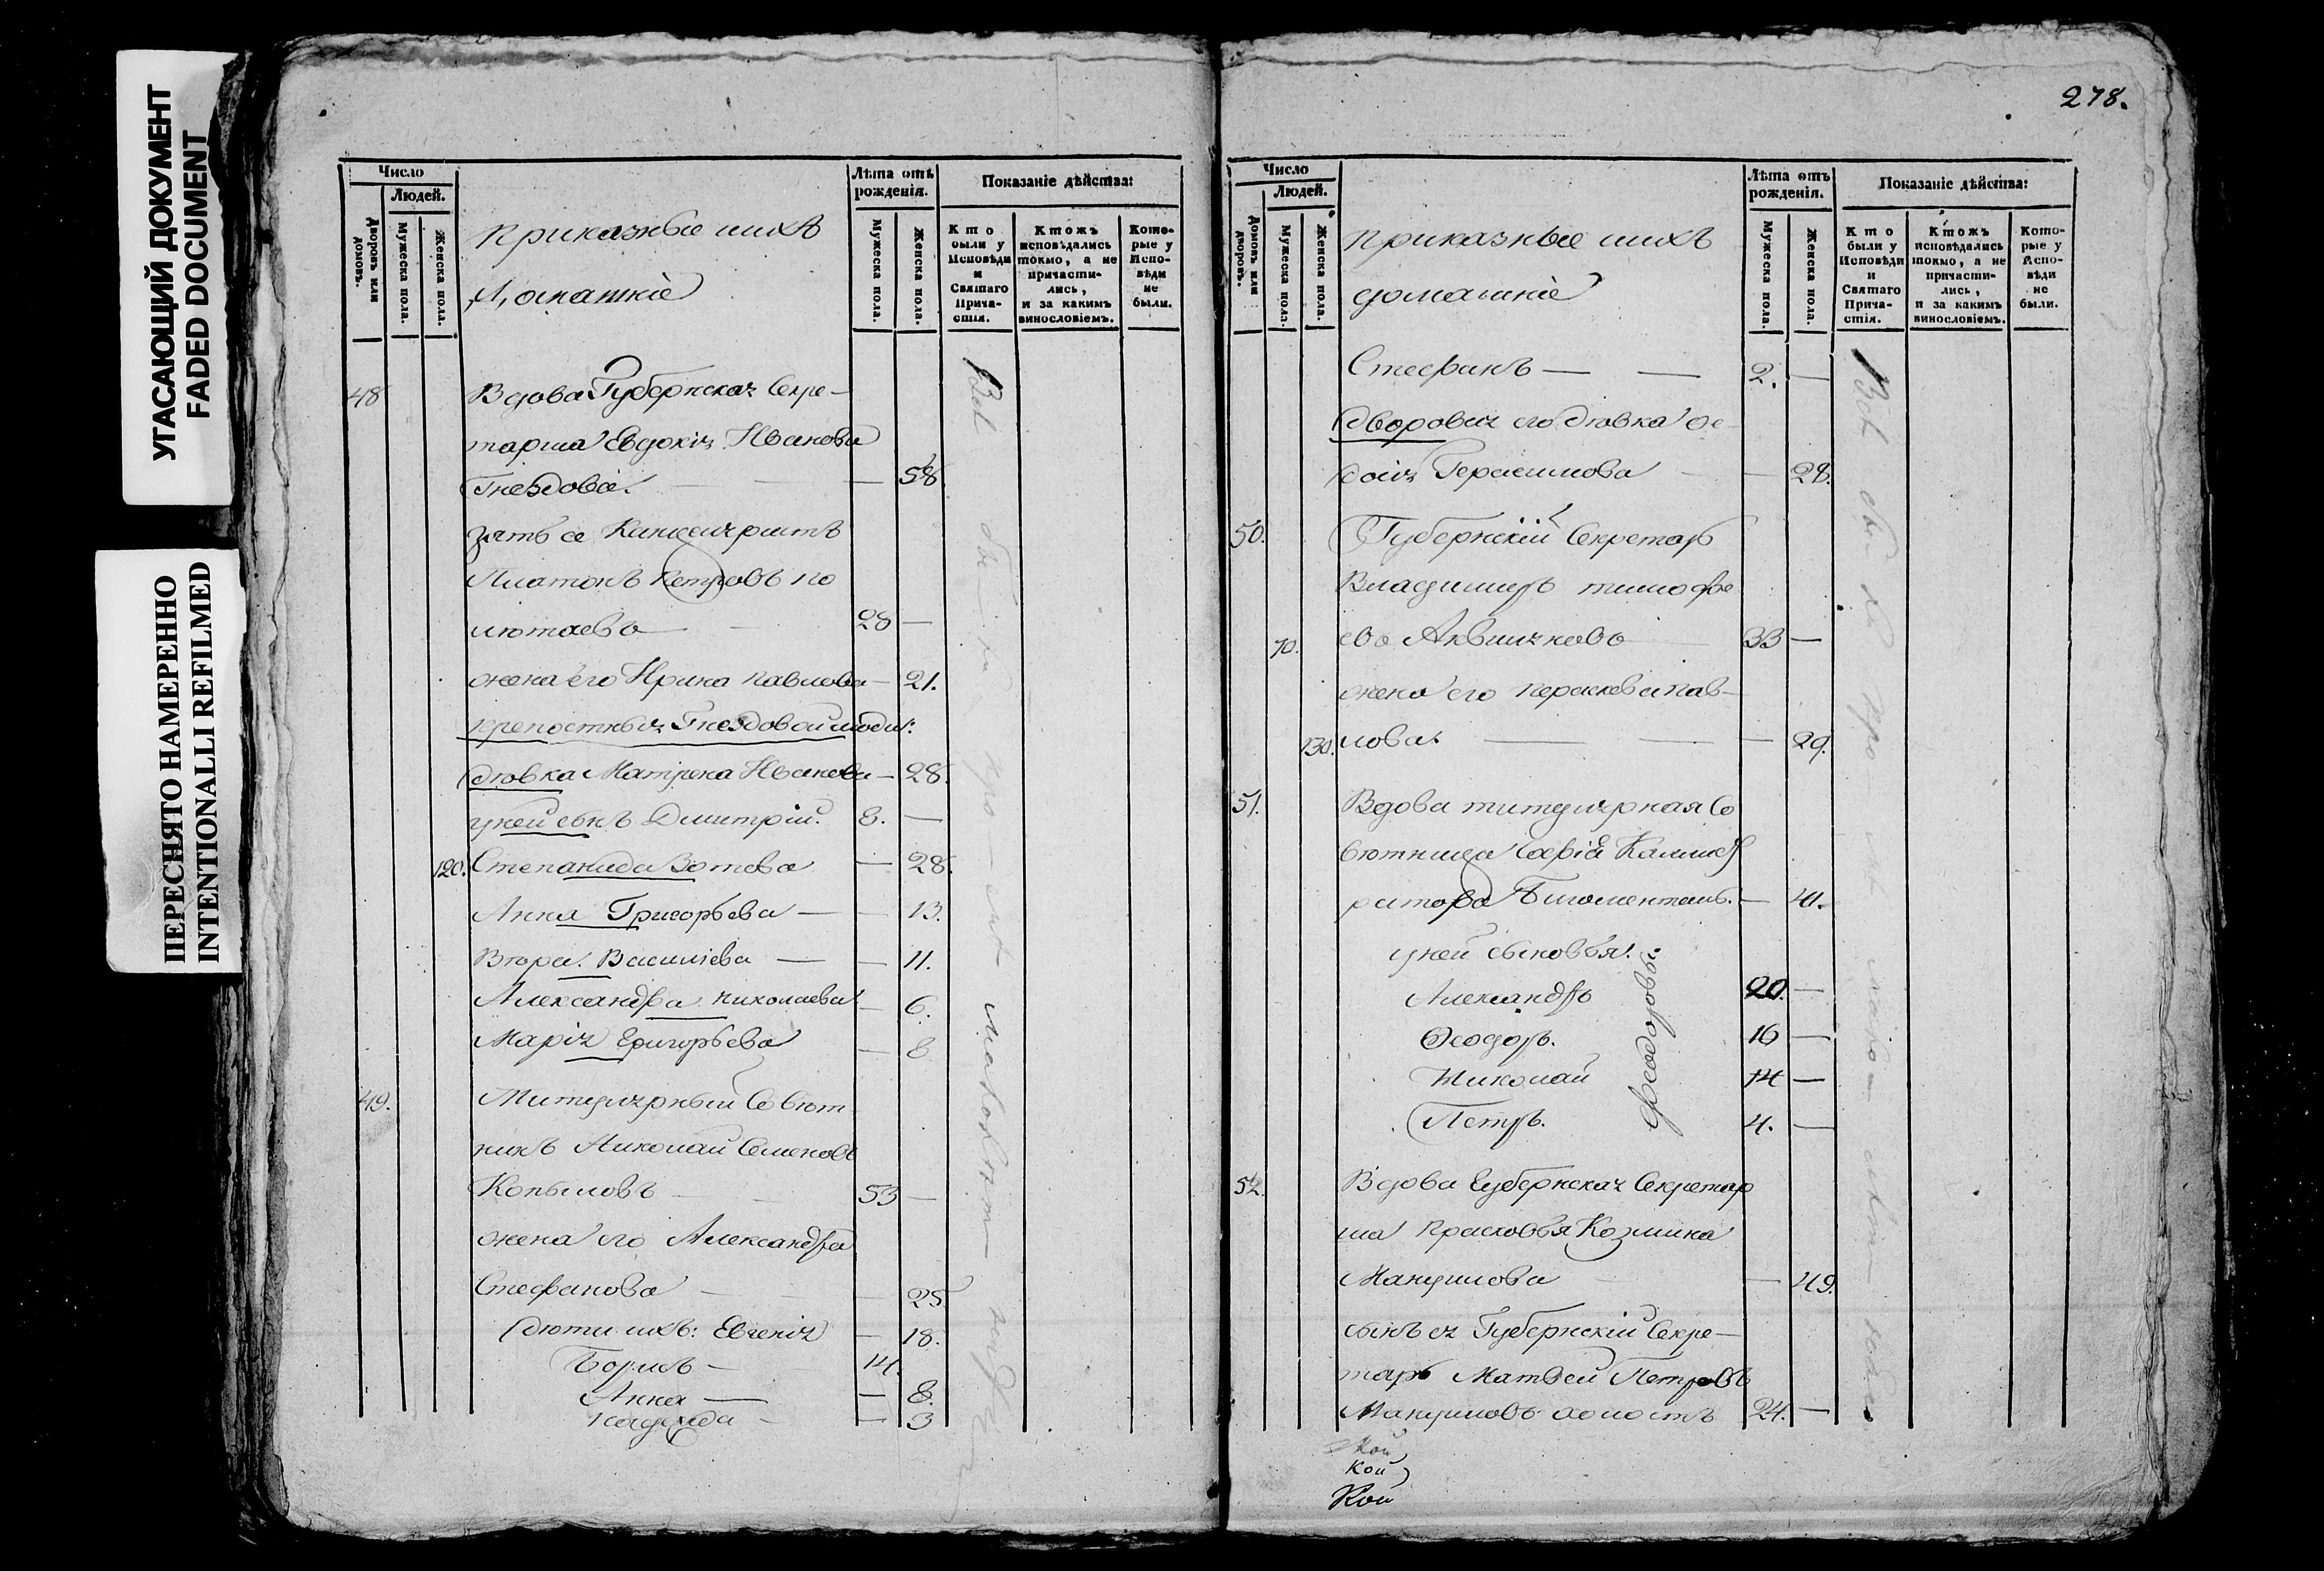 УГАСАЮЩИЙ ДОКУМЕНТ
FADED DOCUMENT
ПЕРЕСНЯТО НАМЕРЕННО
INTENTIONALLI REFILMED
Число
Людей.
Дворовъ или домовъ.
Мужеска пола.
Женска пола.
приказные ихъ
домашніе
Лѣта отъ рожденія.
Мужеска пола.
Женска пола.
Показаніе дѣйства:
Кто были у Исповѣди и Святаго Прича-стія.
Ктожъ исповѣдались токмо, а не причасти-лись, и за какимъ винословіемъ.
Кото-рые у Испо-вѣди не были.
48 Вдова Губернская Секре-
тарша Евдокія Иванова
Гнездова. — 58.
зять ее Канцеляристъ
Платонъ Петровъ по
лютаево 28 —
жена его Ирина Павлова — 21.
крепостныя Гнездовой люди:
дѣвка Матрена Иванова — 28.
у ней сынъ Димитрій. 8. —
120. Степанида Зотова — 28.
Анна Григорьева — 13.
Василіева — 11.
Александра николаева — 6.
Марія Григорьева — 8
49. Титулярный Совѣт
никъ Николай Семеновъ
Копыловъ 53 —
жена его Александра
Стефанова — 25
дѣти ихъ: Евгенія — 18.
Борисъ — 14.
Анна — 8.
— 3
278.
Число
Людей.
Домовъ или дворовъ.
Мужеска пола.
Женска пола.
приказные ихъ
домашніе
Лѣта отъ рожденія.
Мужеска пола.
Женска пола.
Показаніе дѣйства:
Кто были у Исповѣди и Святаго Прича-стія.
Ктожъ исповѣдались токмо, а не причасти-лись, и за какимъ винословіемъ.
Кото-рые у Испо-вѣди не были.
Стефанъ — 2. —
дворовая его дѣвка Ѳе
досія Герасимова — 28.
50. Губернскій Секретарь
Владимиръ тимофе
70. 33 —
жена его Параскева Пав-
130. лова. — 29.
51. Вдова титулярная Со
вѣтница Софія
— 41.
у ней сыновья:
Александръ 20. —
Ѳеодоръ. 16 —
Николай 14 —
Петръ. 4. —
Феодоровы
52. Вдова Губернская Секретар
ша Прасковья Козмина
Мануилова — 49.
сынъ ея Губернскій Секре-
тарь Матвей Петровъ
Мануиловъ холостъ 24. —
кой
кой
Кой